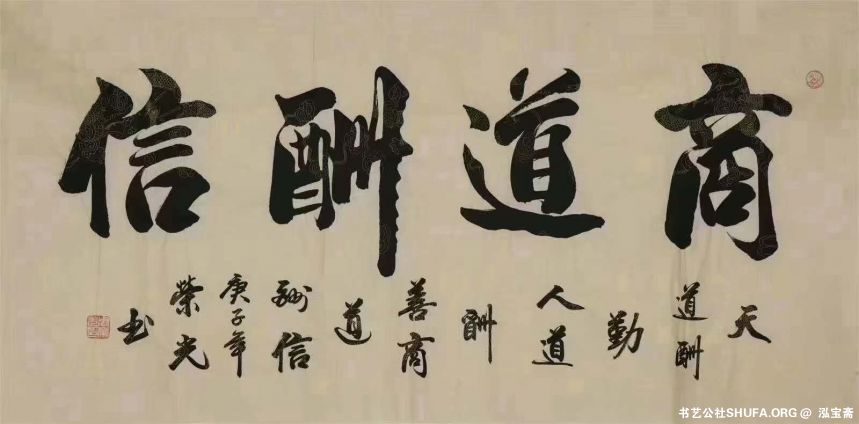 商道酬信
天
道酬
勤
人道
酬
善商
道
酬信
庚子年
荣光
书
书艺公社SHUFA.ORG @ 泓宝斋